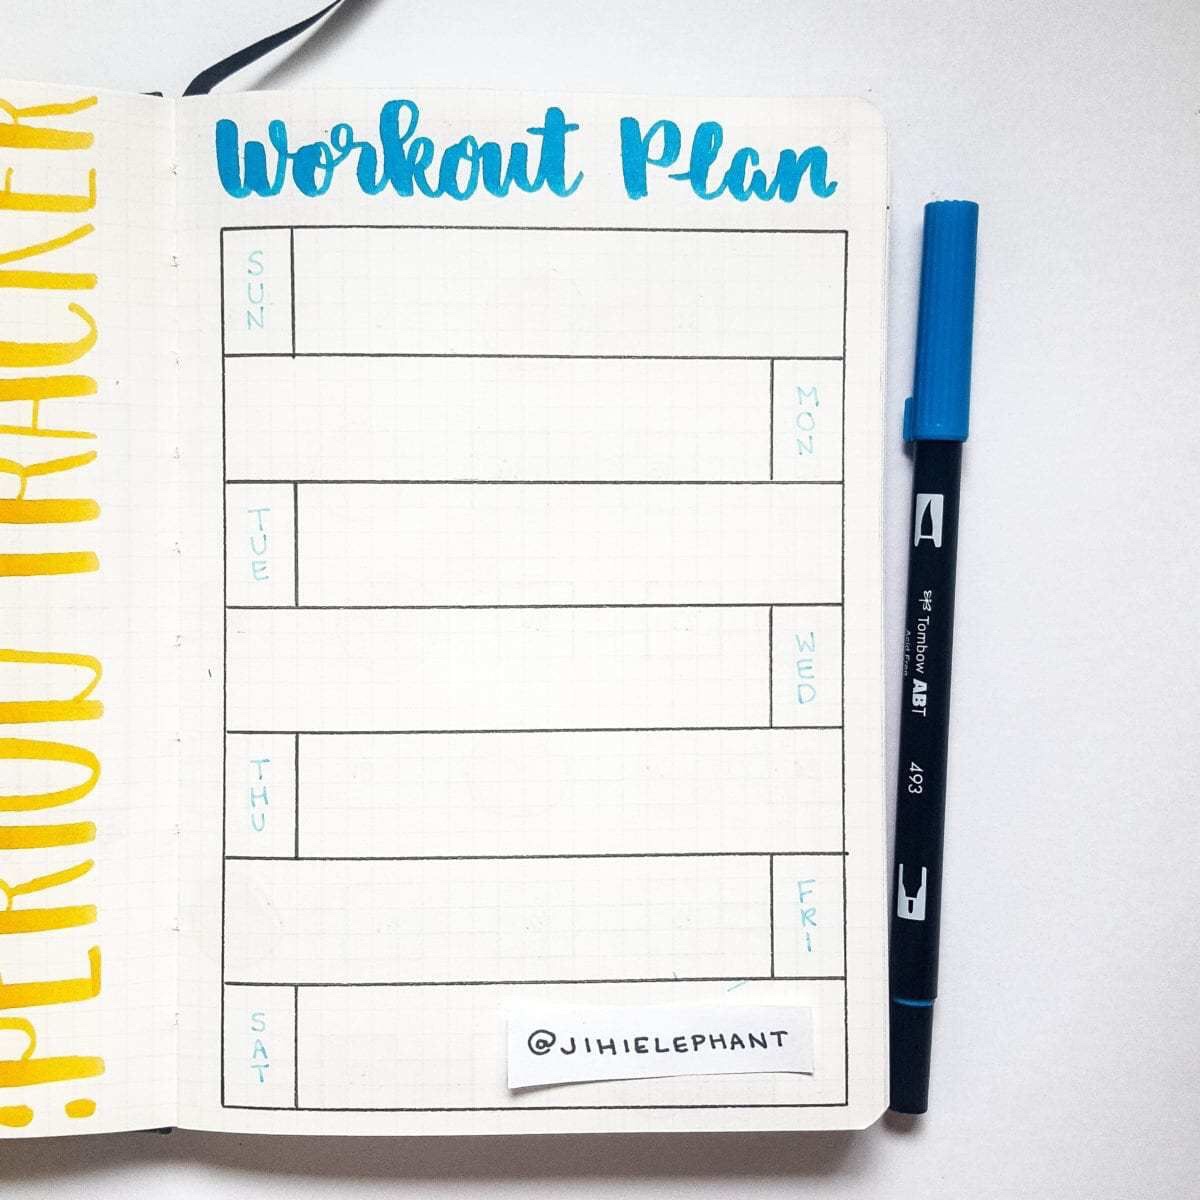 PERIOD TRACKER
Workout Plan
SUN
MON
TUE
WED
THU
FRI
SAT
@JIHIELEPHANT
Tombow ABT
Acid Free
493